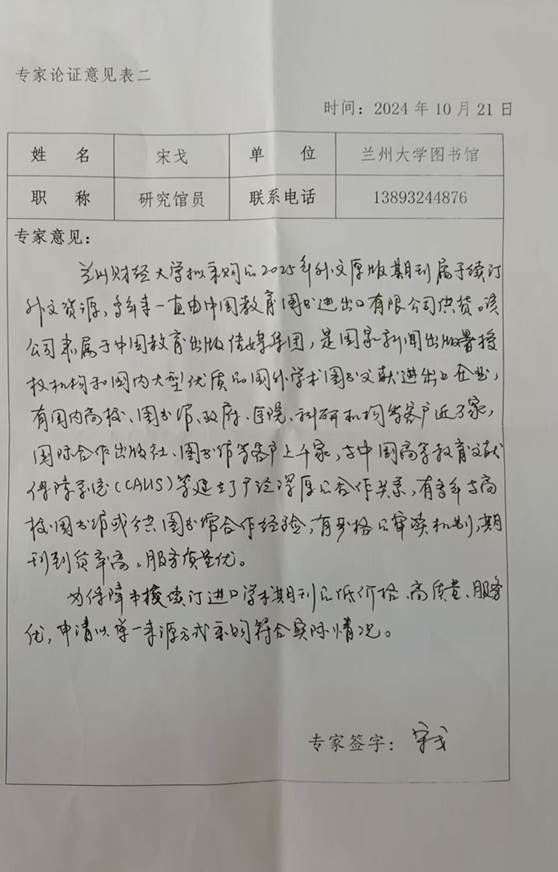 专家论证意见表二
时间：2024 年 10 月 21 日
姓 名 宋戈 单 位 兰州大学图书馆
职 称 研究馆员 联系电话 13893244876
专家意见：
兰州财经大学拟采购的2025年外文原版期刊属于续订
外文资源，多年来一直由中国教育图书进出口有限公司供货。该
公司隶属于中国教育出版传媒集团，是国家新闻出版署授
权机构和国内大型优质的国外学术图书文献进出口企业，
有国内高校、图书馆、政府、医院、科研机构等客户近万家，
国际合作出版社、图书馆等客户上千家，与中国高等教育文献
保障系统(CALIS)等建立了广泛深厚的合作关系，有多年与高
校图书馆或公共图书馆合作经验，有严格的审读机制，期
刊到货率高、服务质量优。
为保障本校续订进口学术期刊的低价格、高质量、服务
优，申请以单一来源方式采购符合实际情况。
专家签字： 宋戈